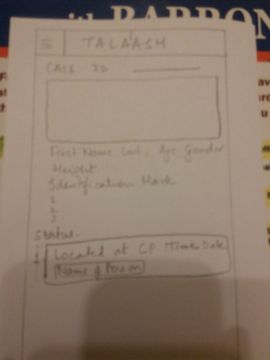 with BARRON
TALAASH
CASE ID : ________
First Name Last, Age Gender
Height
Identification Mark
1.
2.
3.
Status.
Located at CP Time Date
Name of Person